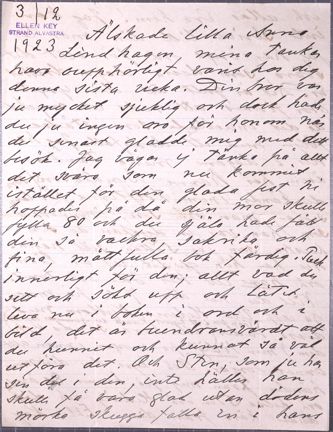 3/12
ELLEN KEY
STRAND ALVASTRA
1923
Älskade lilla Anna
Lindhagen, mina tankar
hava oupphörligt varit hos dig
denna sista vecka. Din bror var
ju mycket sjuklig och dock hade
du ju ingen oro för honom när
du senast gladde mig med ditt
besök. Jag vågar ej tänka på allt
det svåra som nu kommit
istället för den glada fest ni
hoppades på då din mor skulle
fylla 80 och du själv hade fått
din så vackra sakrika och
fina, måttfulla bok färdig. Tack
innerligt för den; allt vad du
sett och sökt upp och låtit
leva nu i boken i ord och i
bild det är beundransvärdt att
du hunnit och kunnat så väl
utföra det. Och Sten, som ju har
sin del i den, inte heller han
skulle få vara glad utan dödens
mörka skugga falla in i hans